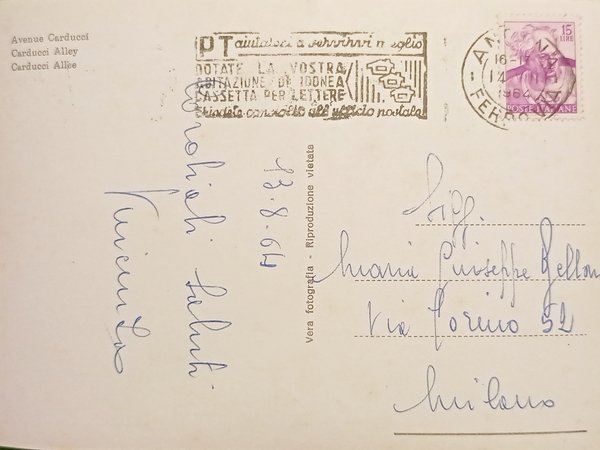 Avenue Carducci
Carducci Alley
Carducci Allee
PT aiutateci a servirvi meglio
DOTATE LA VOSTRA
ABITAZIONE DI IDONEA
CASSETTA PER LETTERE
chiedete consiglio all'ufficio postale
15
LIRE
POSTE ITALIANE
16-1
14
1964
FERROVIA
Cordiali saluti
13-8-64
Vera fotografia - Riproduzione vietata
Sigg.
Maria Giuseppe Bellon
Via Torino 52
Milano